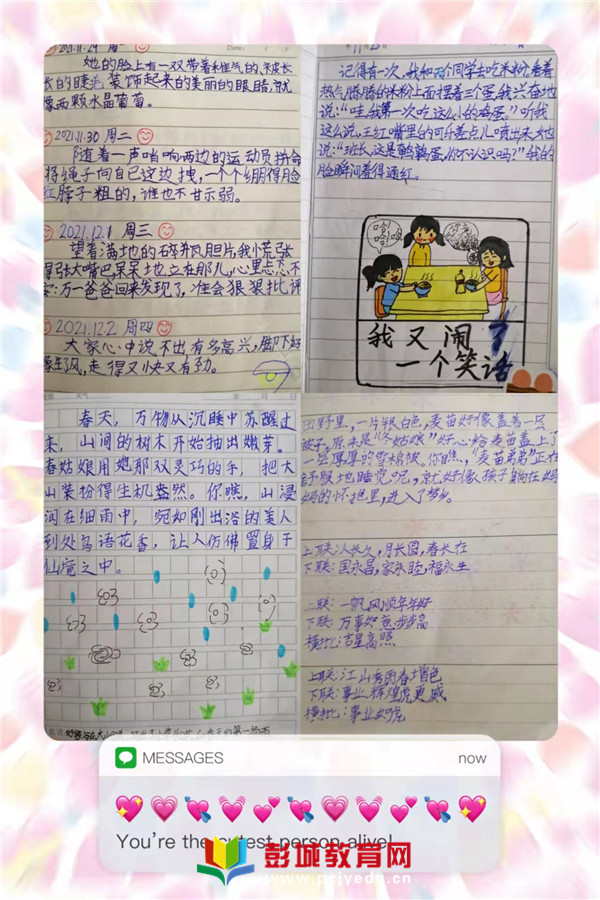 2021.11.29 周一
她的脸上有一双带着稚气的、被长
长的睫毛装饰起来的美丽的眼睛,就
像两颗水晶葡萄。
Date:
2021.11.30 周二
随着一声哨响两边的运动员拼命
将绳子向自己这边拽,一个个绷得脸
红脖子粗的,谁也不甘示弱。
2021.12.1 周三
望着满地的碎
张大嘴巴呆呆地立在那儿,心里忐忑不
安:万一爸爸回来发现了,准会狠狠批评
2021.12.2 周四
大家心中说不出有多高兴,脚下好
像生了风,走得又快又有劲。
11月25日
记得有一次,我和两个同学去吃米粉,看着
热气腾腾的米粉上面摆着三个蛋,我兴奋地
说:“哇,我第一次吃这么小的鸡蛋。”听我
这么说,王红嘴里的可乐差点儿喷出来,她
说:“班长,这是鹌鹑蛋,你不认识吗?”我的
脸瞬间羞得通红。
哈哈
我又闹了
一个笑话
春天,万物从沉睡中苏醒过
来,山间的树木开始抽出嫩芽。
春姑娘用她那双灵巧的手,把大
山装扮得生机盎然。你瞧,山浸
润在细雨中,宛如刚出浴的美人
到处鸟语花香,让人仿佛置身于
仙境之中。
田野里,一片银白色,麦苗好像盖着一床
被子,原来是“冬姑娘”好心给麦苗盖上了
一层厚厚的雪棉被。你瞧,“麦苗弟弟”正在
舒服地睡觉呢,就好像孩子躺在妈
妈的怀抱里,进入了梦乡。
上联:人长久,月长圆,春长在
下联:国永昌,家永睦,福永生
上联:一帆风顺年年好
下联:万事如意步步高
横批:吉星高照
上联:江山秀丽春增色
下联:事业辉煌虎更威
横批:事业如虎
MESSAGES
now
You're the cutest person alive!
彭城教育网
www.pcjyedu.cn